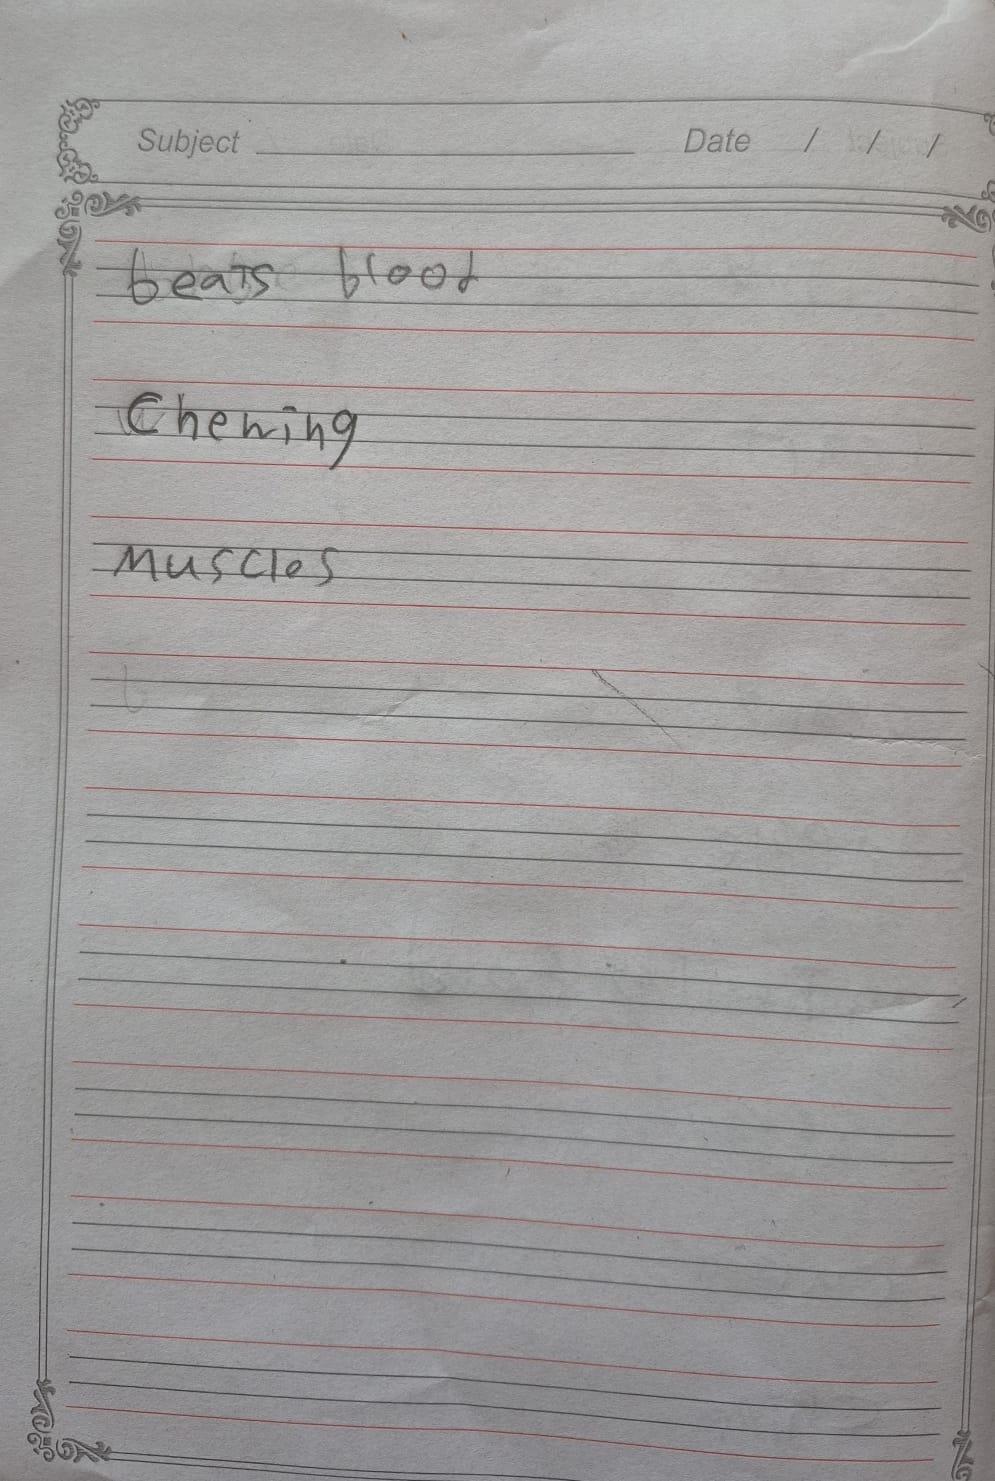 Subject Date / / /
beats blood
Chewing
Muscles